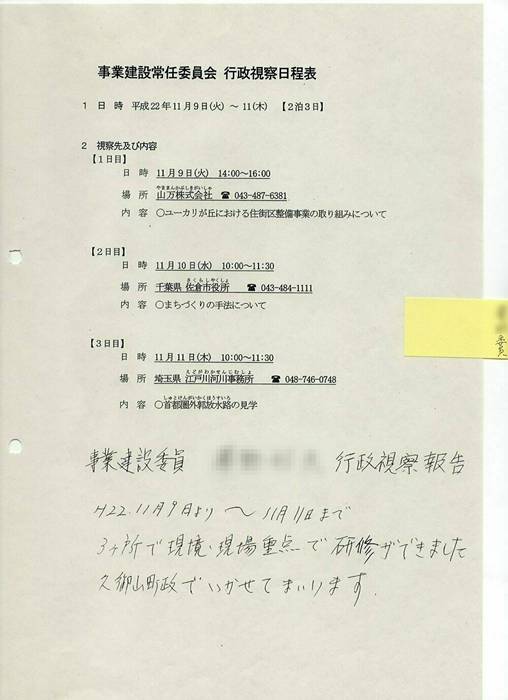 事業建設常任委員会 行政視察日程表
1 日 時 平成22年11月9日(火) ～ 11(木) 【2泊3日】
2 視察先及び内容
【1日目】
日 時 11月9日(火) 14:00～16:00
やままんかぶしきがいしゃ
場 所 山万株式会社 ☎ 043-487-6381
内 容 ○ユーカリが丘における住街区整備事業の取り組みについて
【2日目】
日 時 11月10日(水) 10:00～11:30
さくらしやくしょ
場 所 千葉県 佐倉市役所 ☎ 043-484-1111
内 容 ○まちづくりの手法について
【3日目】
日 時 11月11日(木) 10:00～11:30
えどがわかせんじむしょ
場 所 埼玉県 江戸川河川事務所 ☎ 048-746-0748
しゅとけんがいかくほうすいろ
内 容 ○首都圏外郭放水路の見学
委員
事業建設委員 行政視察報告
H22.11月9日より～11月11日まで
3ヶ所で現境・現場重点で研修ができました
久御山町政でいかせてまいります.